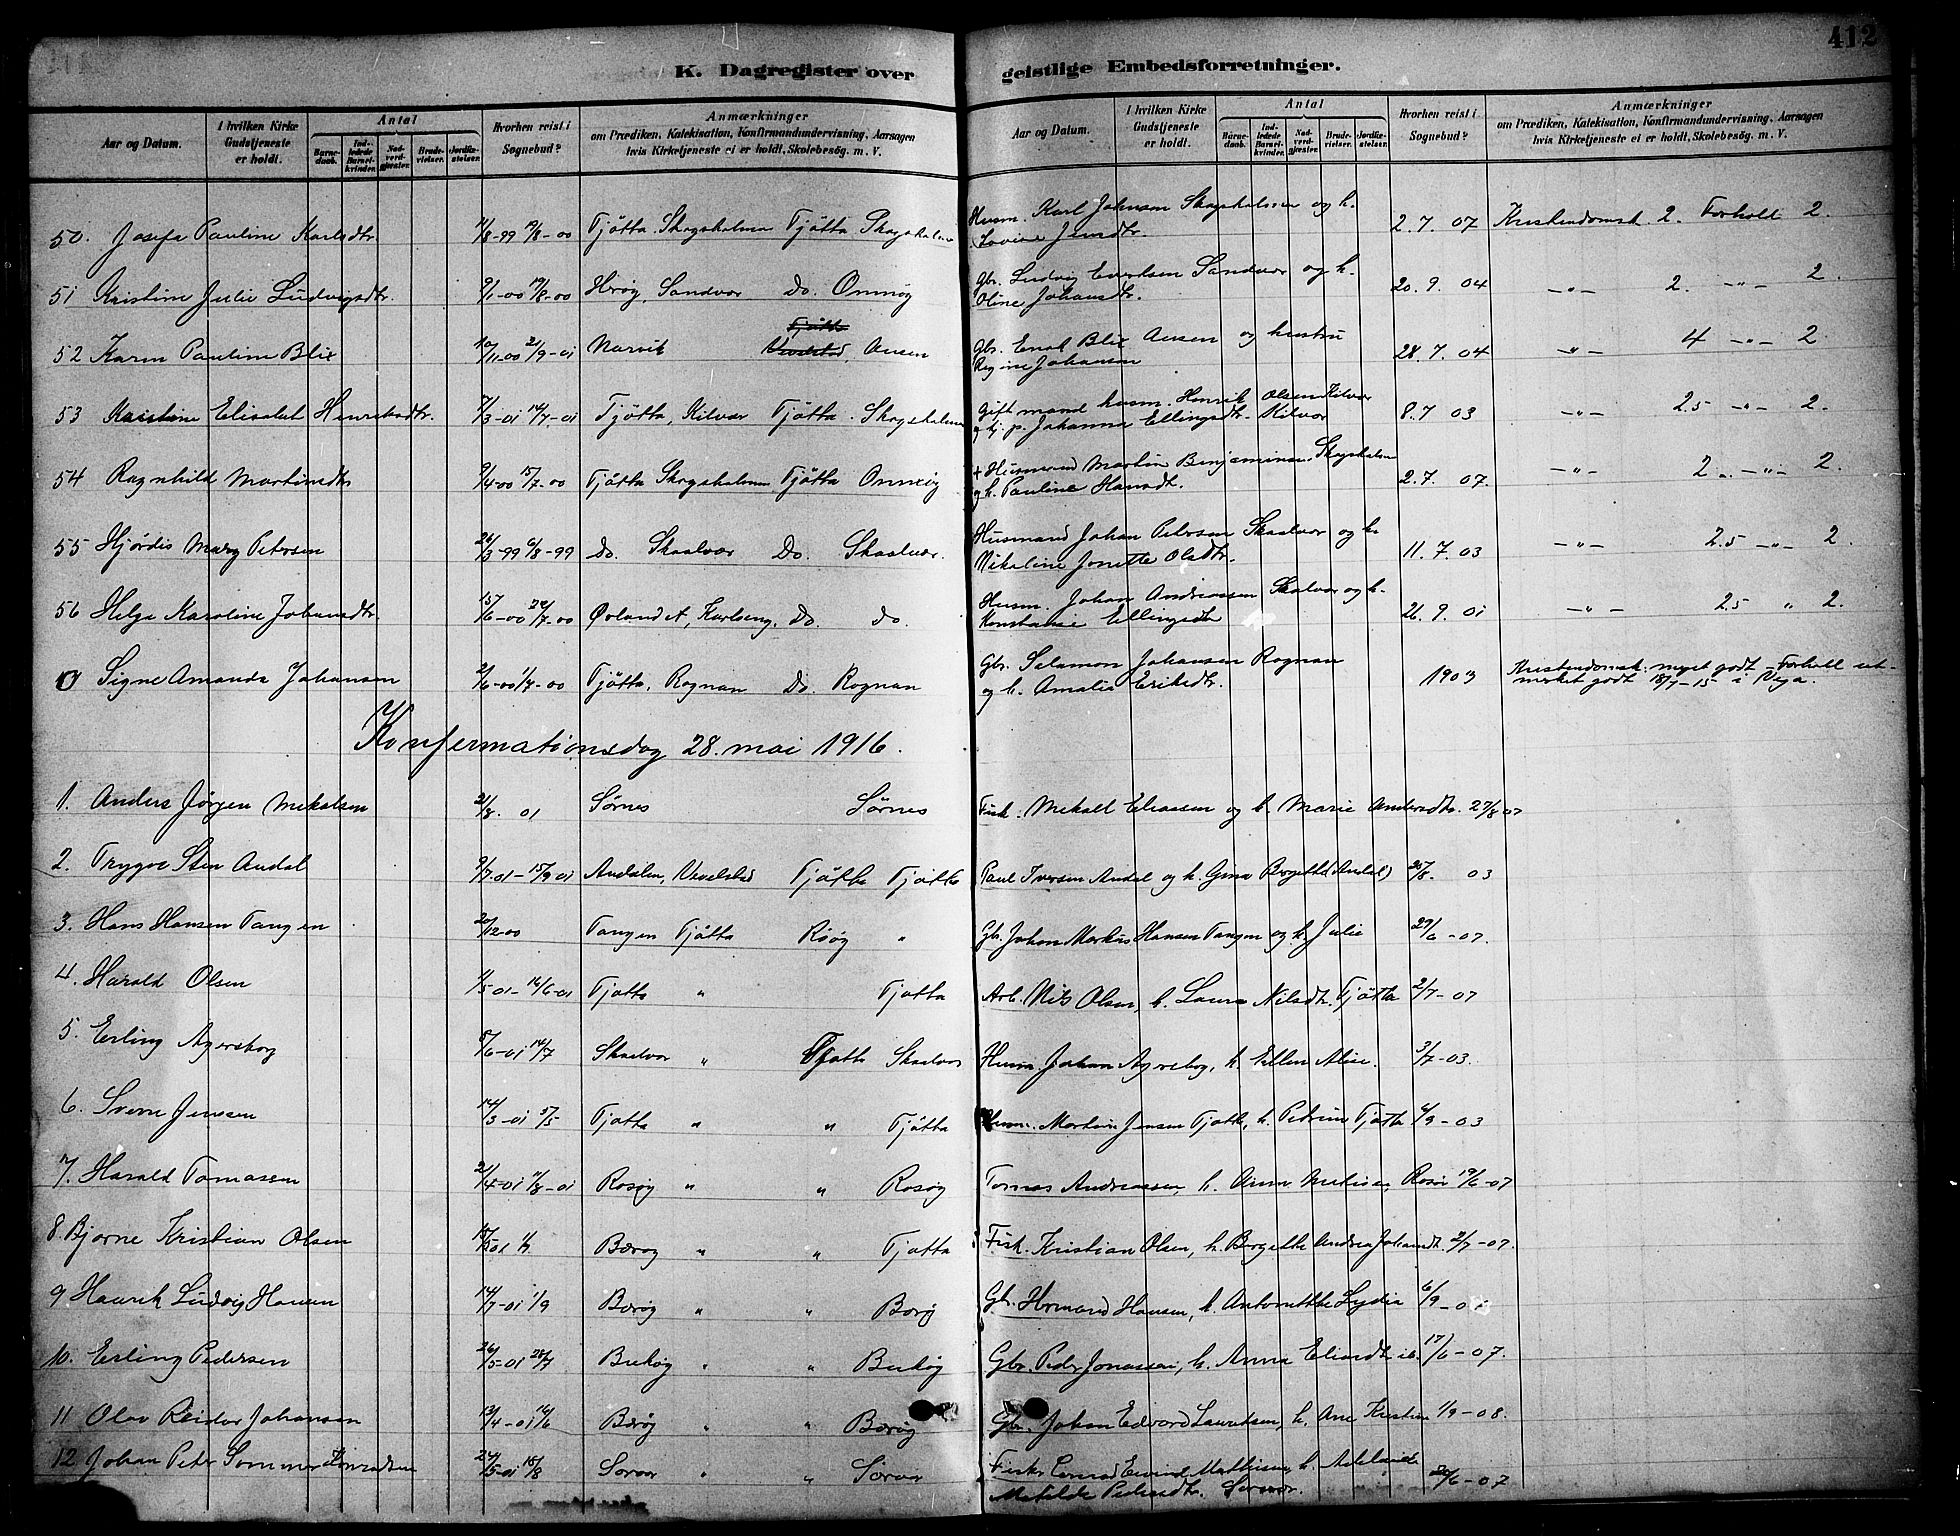 412
K. Dagregister over geistlige Embedsforretninger.
Aar og Datum. I hvilken Kirke Gudstjeneste er holdt. Antal Barnedaab. Indledede Barselkvinder. Nadverdgjæster. Brudevielser. Jordfæstelser. Hvorhen reist i Sognebud? Anmærkninger om Prædiken, Katekisation, Konfirmandundervisning, Aarsagen hvis Kirketjeneste ei er holdt, Skolebesøg. m. V.
Aar og Datum. I hvilken Kirke Gudstjeneste er holdt. Antal Barnedaab. Indledede Barselkvinder. Nadverdgjæster. Brudevielser. Jordfæstelser. Hvorhen reist i Sognebud? Anmærkninger om Prædiken, Katekisation, Konfirmandundervisning, Aarsagen hvis Kirketjeneste ei er holdt, Skolebesøg. m. V.
50. Josefa Pauline Karlsdtr. Tjøtta. Skogsholmen Tjøtta Skogsholmen
Husm. Karl Johnsen Skogsholmen og h.
Lovise Jensdtr. 2.7.07 Kristendomsk. 2. Forhold 2.
51 Kristine Julie Ludvigsdtr. 9/1-00 Herøy, Sandvær Do. Omnøy
Gbr. Ludvig Evertsen Sandvær og h.
Oline Johansdtr. 20.9.04 -"- 2. -"- 2.
52 Karen Pauline Blix 10/11-00 21/9-01 Narvik Ausen
Gbr. Enok Blix Ausen og hustru
Regine Johansen 28.7.04 -"- 4 -"- 2.
53 Kristine Elisabet Henriksdtr. 7/3-01 14/7-01 Tjøtta, Kilvær Tjøtta. Skogsholmen
Gift mand husm. Henrik Olsen Kilvær
og tj. p. Johanna Ellingsdtr. Kilvær 8.7 03 -"- 2.5 -"- 2.
54 Ragnhild Martinsdtr 9/4-00 15/7-00 Tjøtta Skogsholmen Tjøtta Omnøy
+ Husmand Martin Benjaminsen Skogsholmen
og h. Pauline Hansdt. 2.7. 07. -"- 2 -"- 2.
55 Hjørdis Mary Petersen 26/3-99 6/8-99 Do. Skaalvær Do. Skaalvær.
Husmand Johan Petersen Skaalvær og h.
Nikoline Jonette Olsdtr. 11.7.03 -"- 2.5 -"- 2.
56 Helga Karoline Johansdtr. 15/6-00 22/7-00 Øvland A, Karlseng. Do. do.
Husm. Johan Andreassen Skalvær og h.
Konstanse Ellingsdtr 26.9.01 -"- 2.5 " 2.
Signe Amanda Johansen 2/6-00 1/7-00 Tjøtta, Rognan Do. Rognan
Gbr. Salamon Johansen Rognan
og h. Amalia Eriksdtr. 1903 Kristendomsk: meget godt - Forhold ut-
merket godt 18/7-15 i Vega.
Konfirmationsdag 28. mai 1916.
1. Anders Jørgen Mekalsen 21/8. 01 Sørnes Sørnes Fisk. Mekall Eliassen og h. Marie Andersdtr. 27/8 07
2. Trygve Sten Andal 9/7-01-15/9 01 Andalen, Vevelstad Tjøtta Tjøtta Paul Iversen Andal og h. Gina Bergette (Andal) 20/8. 03
3. Hans Hansen Tangen 20/12-00 Tangen Tjøtta Røøy " Gbr. Johan Markus Hansen Tangen og h. Julie 29/6-07.
4. Harald Olsen 1/5-01-16/6-01 Tjøtta " Tjøtta Arb. Nils Olsen, h. Laura Nilsdt. Tjøtta 2/7-07
5. Erling Agersborg 8/6-01 14/7 Skaalvær " Tjøtta Skaalvær Husm. Johan Agersborg, h. Ellen Alise. 3/7-03.
6. Sverre Jensen 14/3-01 5/5 Tjøtta " " Tjøtta Husm. Martin Jensen Tjøtta, h. Petrine Tjøtta 4/9-03
7. Harald Tomassen 2/4-01 11/8-01 Rosøy " " Rosøy Tomas Andreassen, h. Anna Metine, Rosøy 19/6-07
8. Bjarne Kristian Olsen 15/5 01 1/7 Bærøy " " Tjøtta Fisk. Kristian Olsen, h. Bergette Andrea Johansdt. 2/7-07.
9 Henrik Ludvig Hansen 14/7-01 1/9 Bærøy " " Børøy Gbr. Hermand Hansen, h. Antonette Lydia 6/9-0
10. Erling Pedersen 26/5-01 28/7 Bukøy " " Bukøy Gbr. Peder Jonassen, h. Anna Eliasdt. ib. 17/6-07.
11 Olav Reidar Johansen 13/4-01 16/6 Børøy " " Børøy Gbr. Johan Edvard Lauritsen, h. Ane Kristine 1/9-08.
12 Johan Peter Sommer Konradsen 24/5-01 18/8 Sørvær " " Sørvær Fisker Conrad Eivind Mathisen, h. Adelaide
Matilde Pedersdtr. Sørvær. 26/6-07